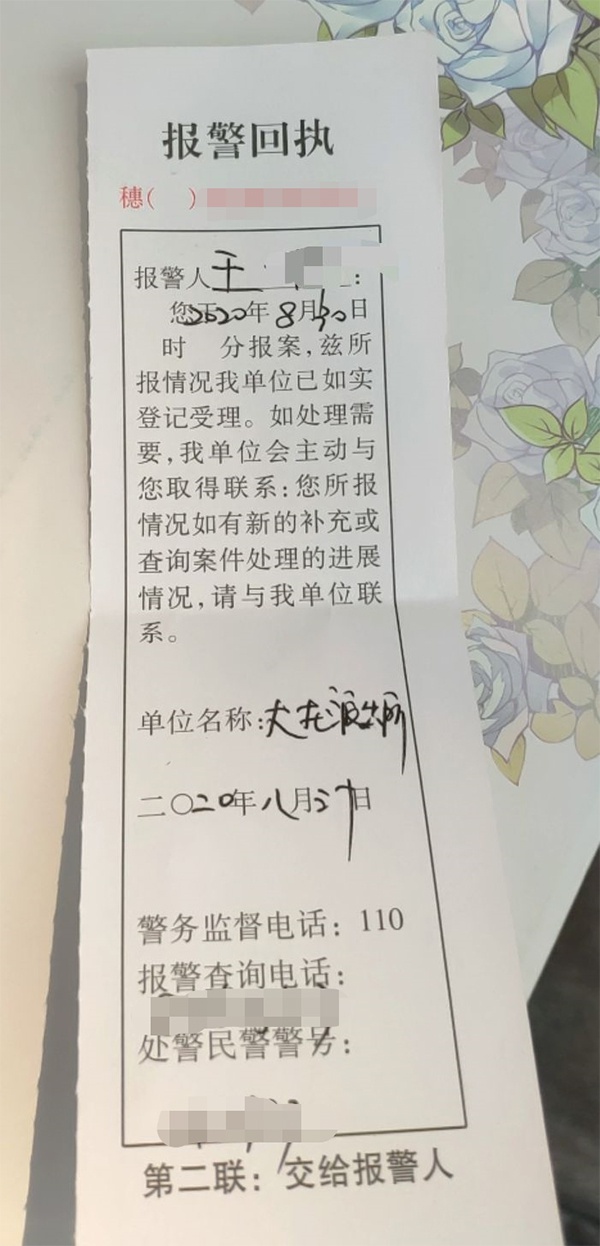 报警回执
穗( )
报警人王
您于2020年8月30日
时 分报案,兹所
报情况我单位已如实
登记受理。如处理需
要,我单位会主动与
您取得联系:您所报
情况如有新的补充或
查询案件处理的进展
情况,请与我单位联
系。
单位名称:大龙派出所
二〇20年八月31日
警务监督电话:110
报警查询电话:
处警民警警号:
第二联:交给报警人